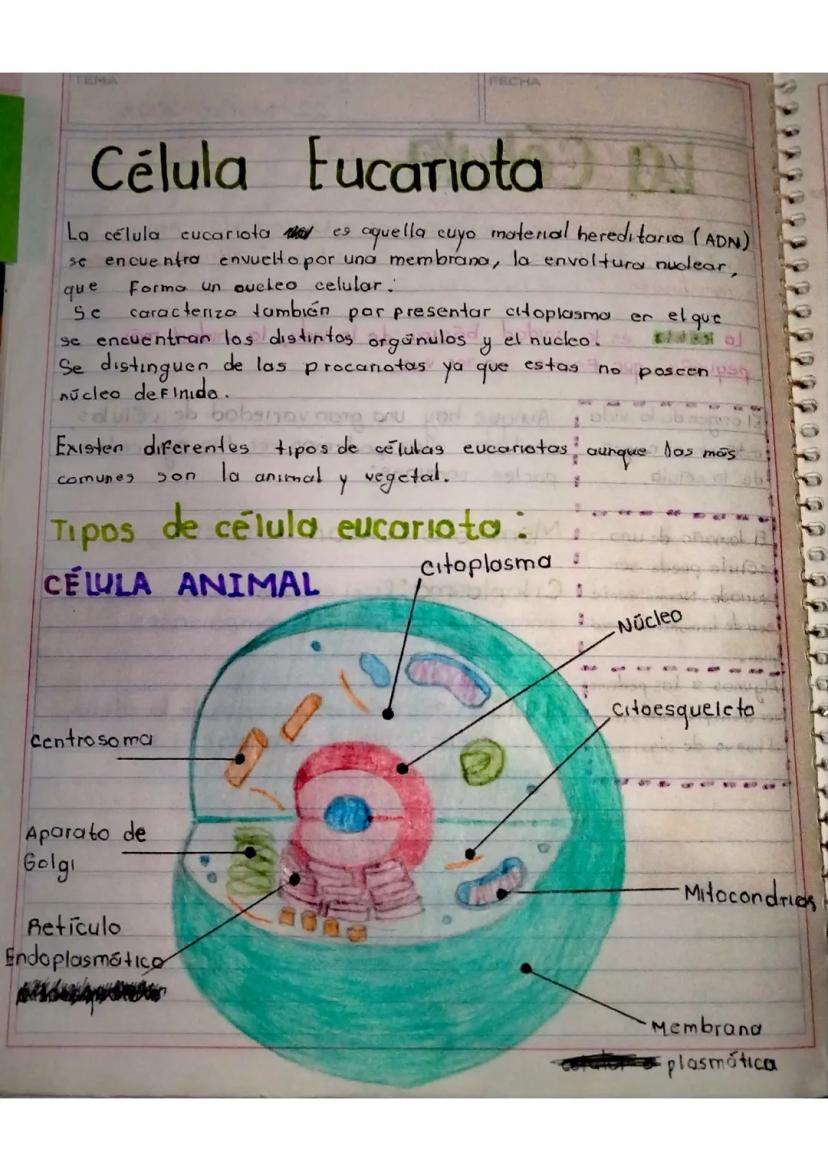 TEMA
FECHA
Célula Eucariota
La célula eucariota es aquella cuyo material hereditario (ADN)
se encuentra envuelto por una membrana, la envoltura nuclear,
que forma un nucleo celular.
Se caracteriza también por presentar citoplasma en el que
se encuentran los distintos orgánulos y el nucleo.
Se distinguen de las procariotas ya que estas no poseen
núcleo definido.
Existen diferentes tipos de células eucariotas, aunque las más
comunes son la animal y vegetal.
Tipos de célula eucariota:
CÉLULA ANIMAL
citoplasma
Núcleo
citoesqueleto
centrosoma
Aparato de
Golgi
Mitocondrias
Retículo
Endoplasmático
Membrana
plasmática